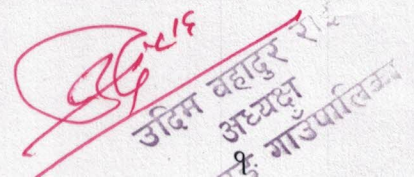 उदिम बहादुर राई
अध्यक्ष
गाउँपालिका
१